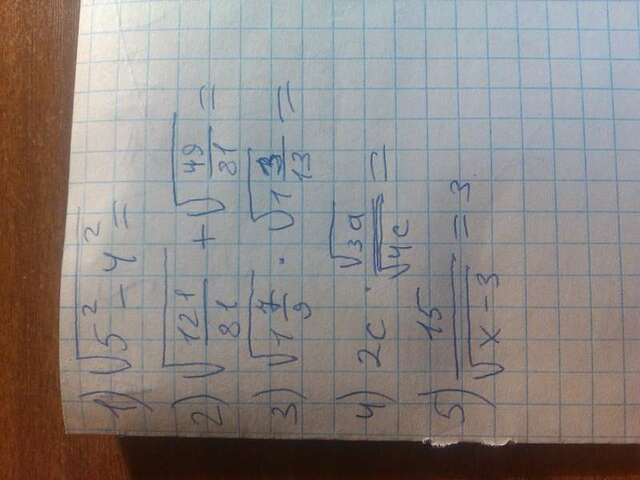 1) √(5² - 4²) =
2) √(121/81) + √(49/81) =
3) √(1 7/9) · √(1 3/13) =
4) 2c · √3a/√4c =
5) 15/√(x - 3) = 3